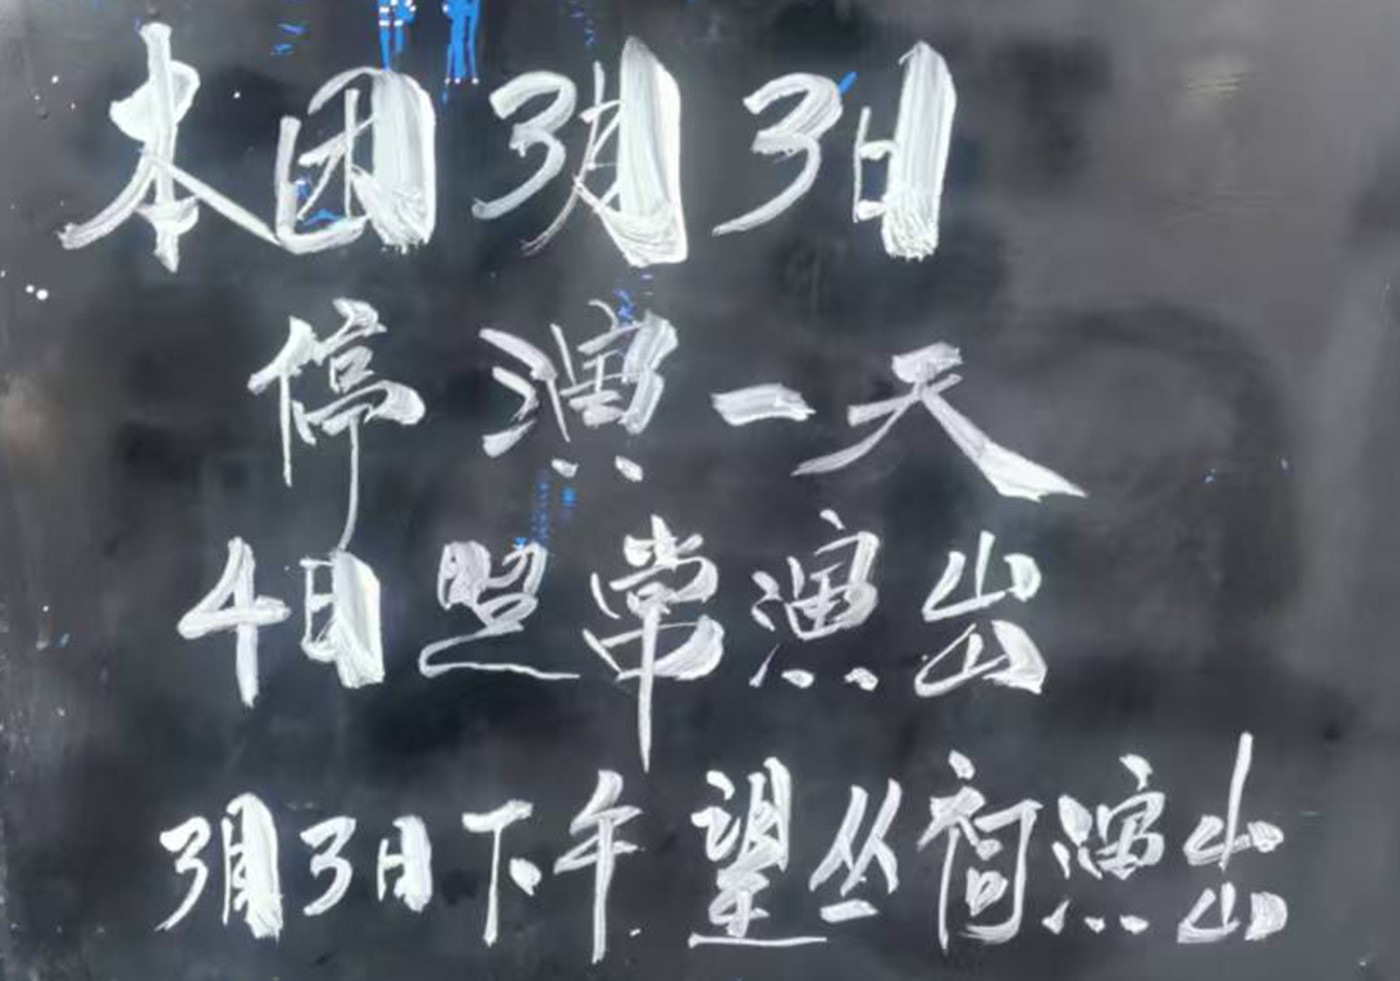 本团3月3日
停演一天
4日照常演出
3月3日下午望丛祠演出